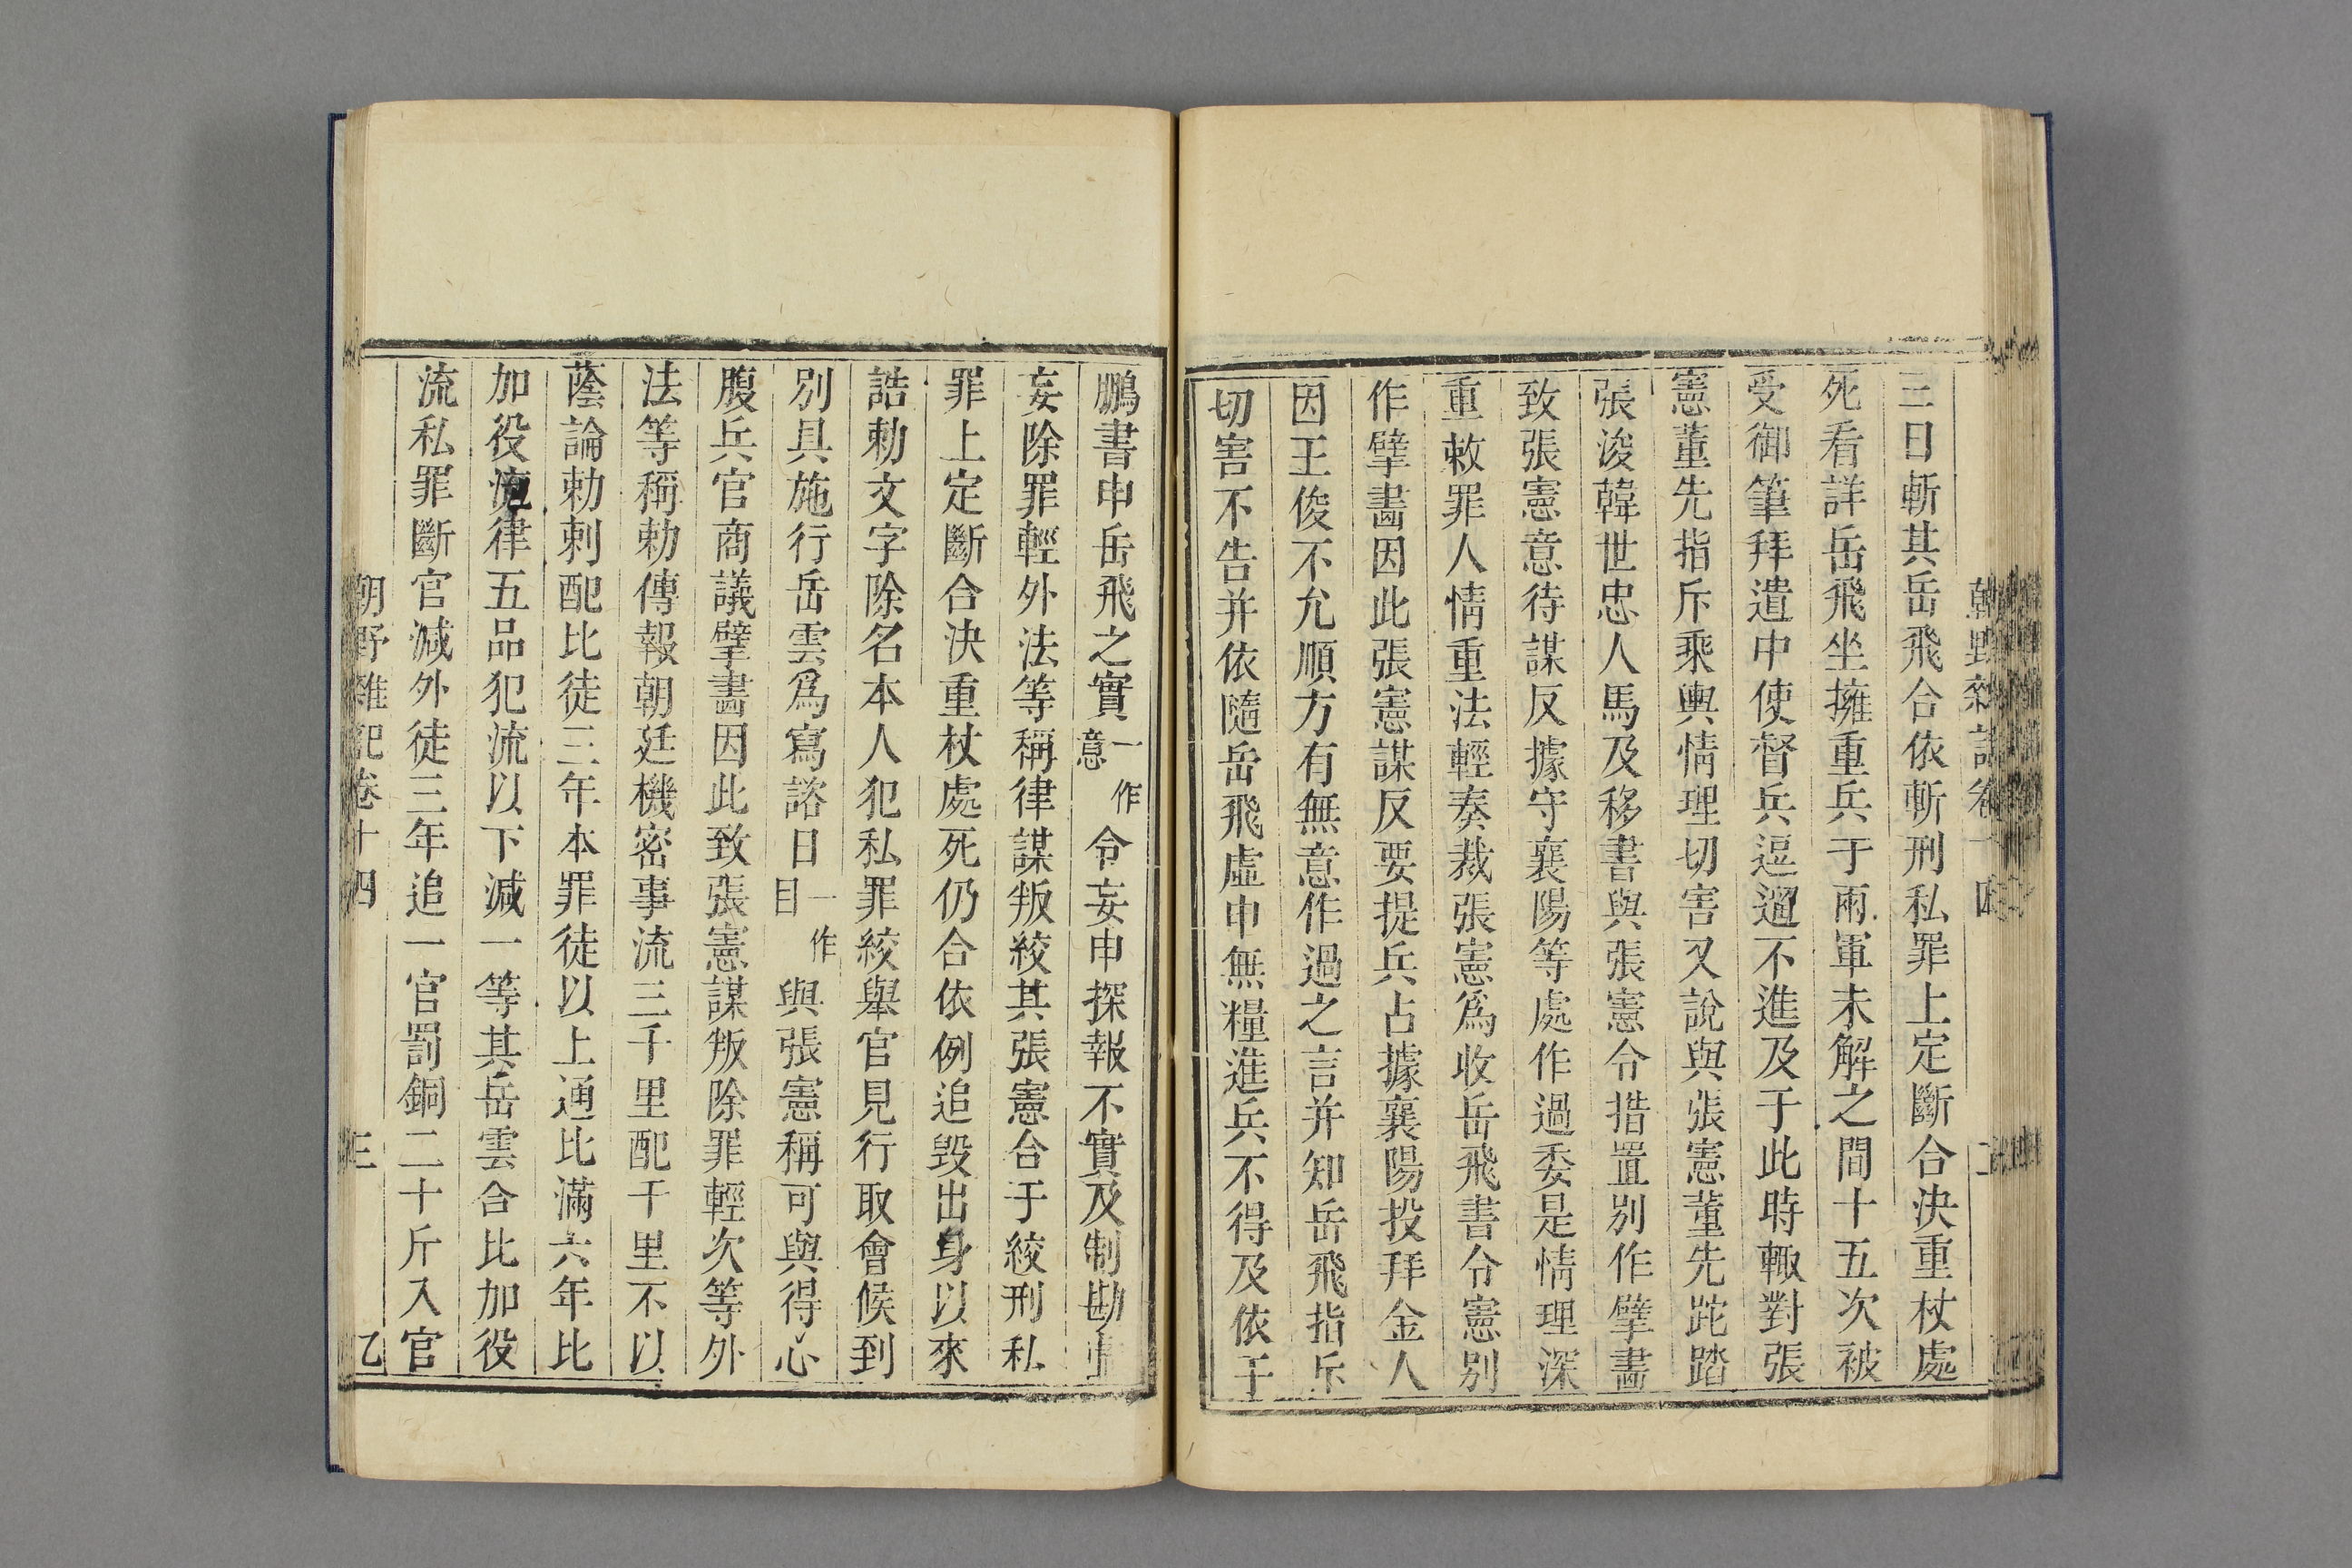 三日斬其岳飛合依斬刑私罪上定斷合決重杖處
死看詳岳飛坐擁重兵于兩軍未解之間十五次被
受御筆拜遣中使督兵逗遛不進及于此時輙對張
憲董先指斥乘輿情理切害又說與張憲董先跎踏
張浚韓世忠人馬及移書與張憲令措置別作擘畫
致張憲意待謀反據守襄陽等處作過委是情理深
重敕罪人情重法輕奏裁張憲爲收岳飛書令憲別
作擘畫因此張憲謀反要提兵占據襄陽投拜金人
因王俊不允順方有無意作過之言并知岳飛指斥
切害不告并依隨岳飛虛申無糧進兵不得及依于
鵬書申岳飛之實一作意令妄申探報不實及制勘
妄除罪輕外法等稱律謀叛絞其張憲合于絞刑私
罪上定斷合決重杖處死仍合依例追毀出身以來
誥勅文字除名本人犯私罪絞舉官見行取會候到
別具施行岳雲爲寫諮日一作目與張憲稱可與得心
腹兵官商議擘畫因此致張憲謀叛除罪輕次等外
法等稱勅傳報朝廷機密事流三千里配千里不以
蔭論勅刺配比徒三年本罪徒以上通比滿六年比
加役流律五品犯流以下減一等其岳雲合比加役
流私罪斷官減外徒三年追一官罰銅二十斤入官
朝野雜記卷十四 三 乙